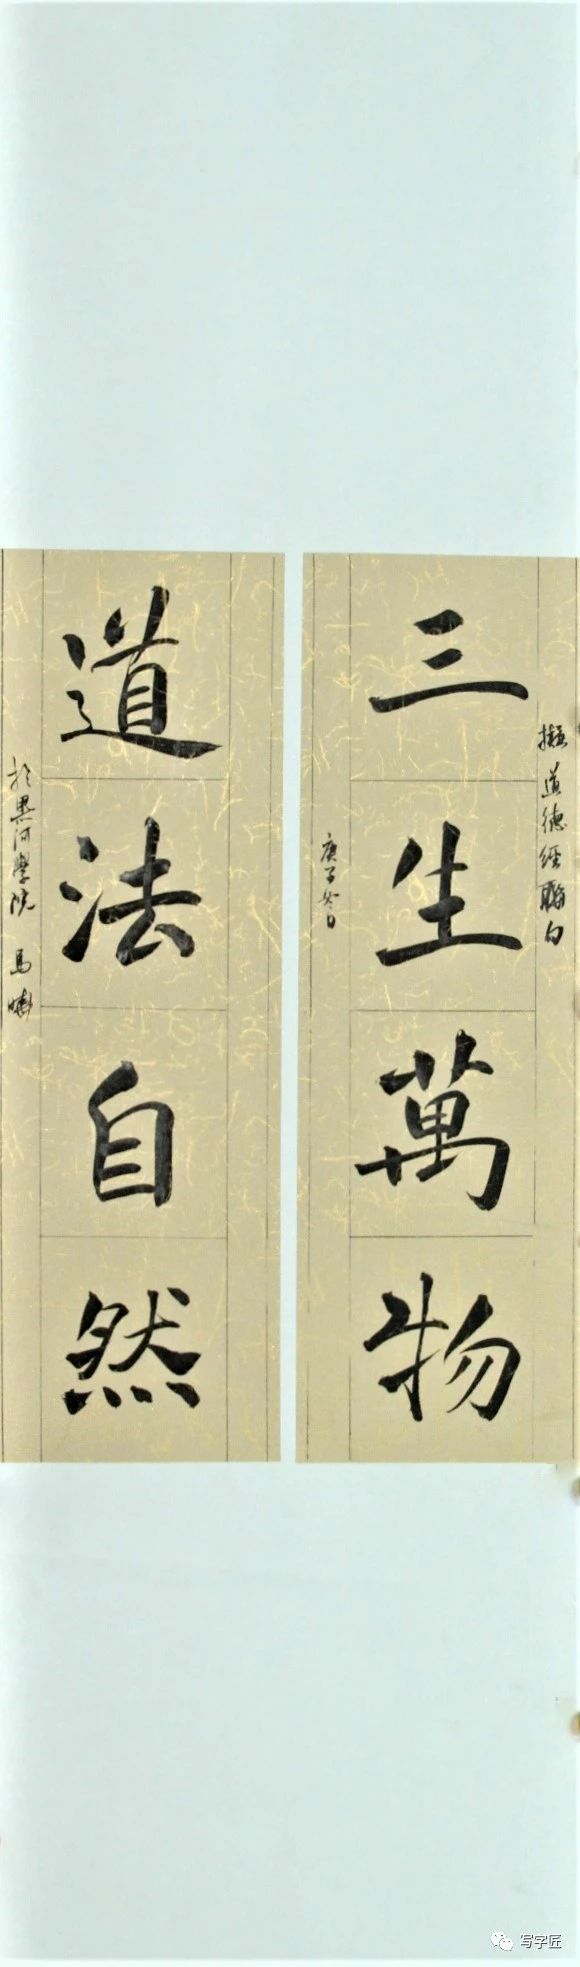 擬道德經聯句
三生萬物
庚子冬日
道法自然
於黑河學院 馬
写字匠